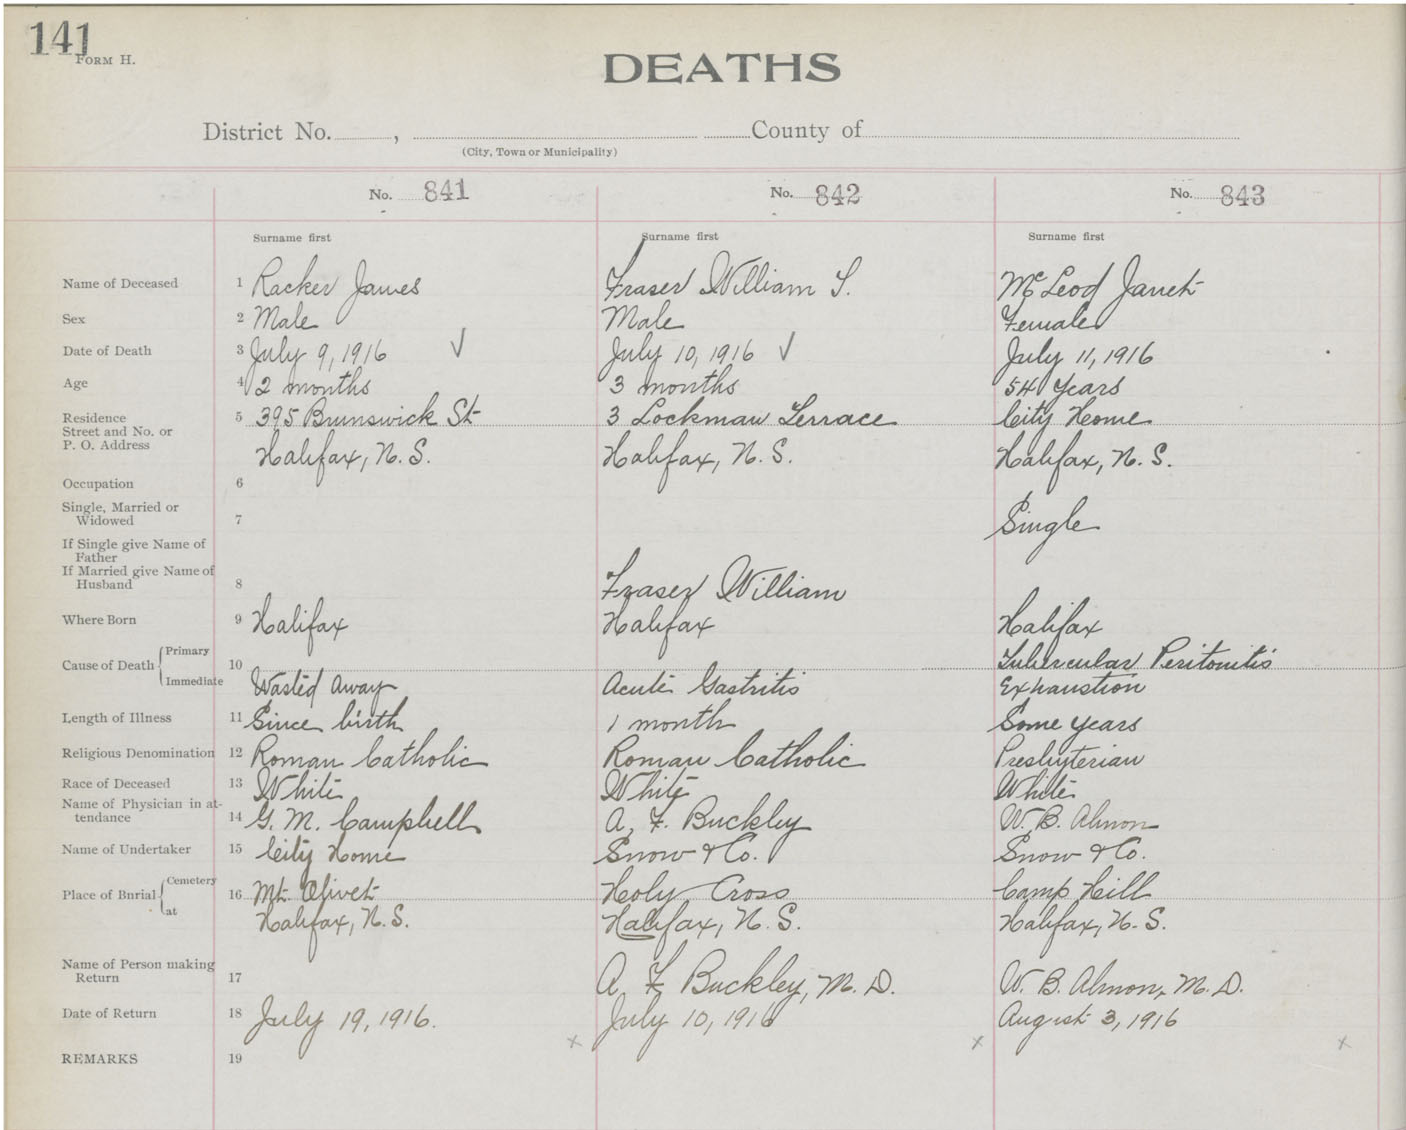 141
FORM H.
DEATHS
District No. , County of
(City, Town or Municipality)
No. 841 No. 842 No. 843
Surname first Surname first Surname first
Name of Deceased 1 Racker James Fraser William S. McLeod Janet
Sex 2 Male Male Female
Date of Death 3 July 9, 1916 ✓ July 10, 1916 ✓ July 11, 1916
Age 4 2 months 3 months 54 Years
Residence 5 395 Brunswick St 3 Lockman Terrace City Home
Street and No. or
P. O. Address Halifax, N. S. Halifax, N. S. Halifax, N. S.
Occupation 6
Single, Married or
Widowed 7 Single
If Single give Name of
Father
If Married give Name of
Husband 8 Fraser William
Where Born 9 Halifax Halifax Halifax
Cause of Death { Primary 10 Tubercular Peritonitis
Immediate Wasted Away Acute Gastritis Exhaustion
Length of Illness 11 Since birth 1 month Some years
Religious Denomination 12 Roman Catholic Roman Catholic Presbyterian
Race of Deceased 13 White White White
Name of Physician in at-
tendance 14 G. M. Campbell A. F. Buckley W. B. Almon
Name of Undertaker 15 City Home Snow & Co. Snow & Co.
Place of Bnrial { Cemetery 16 Mt. Olivet Holy Cross Camp Hill
at Halifax, N. S. Halifax, N. S. Halifax, N. S.
Name of Person making
Return 17 A. F. Buckley, M. D. W. B. Almon, M. D.
Date of Return 18 July 19, 1916. July 10, 1916 August 3, 1916
x x x
REMARKS 19